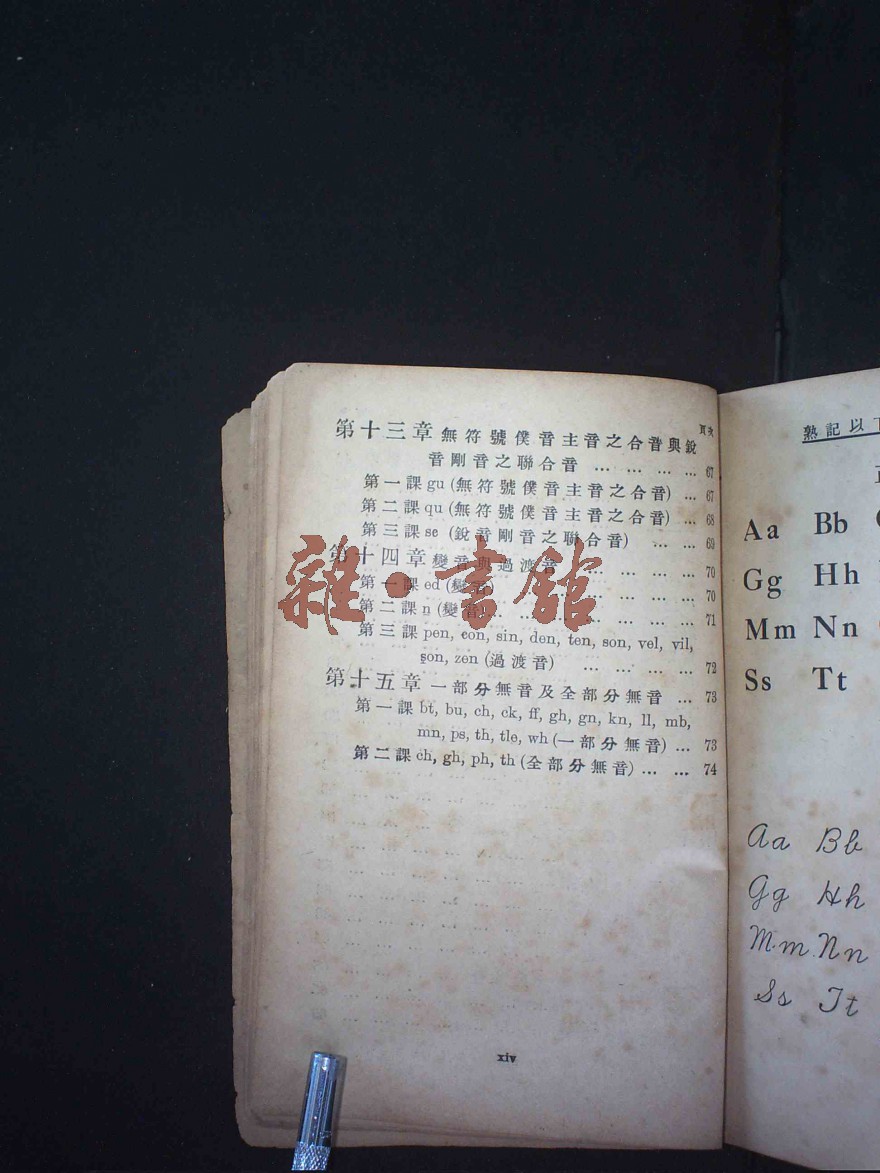 頁次
第十三章 無符號僕音主音之合音與銳
音剛音之聯合音 … … … … 67
第一課 gu (無符號僕音主音之合音) … 67
第二課 qu (無符號僕音主音之合音) … 68
第三課 sc (銳音剛音之聯合音) … … 69
第十四章 變音與過渡音 … … … … 70
第一課 ed (變音) … … … … 70
第二課 n (變音) … … … … … 71
第三課 pen, con, sin, den, ten, son, vel, vil,
son, zen (過渡音) … … … … 72
第十五章 一部分無音及全部分無音 … 73
第一課 bt, bu, ch, ck, ff, gh, gn, kn, ll, mb,
mn, ps, th, tle, wh (一部分無音) … 73
第二課 ch, gh, ph, th (全部分無音) … … 74
xiv
雜·書館
熟記以下
Aa Bb
Gg Hh
Mm Nn
Ss Tt
Aa Bb
Gg Hh
Mm Nn
Ss Tt